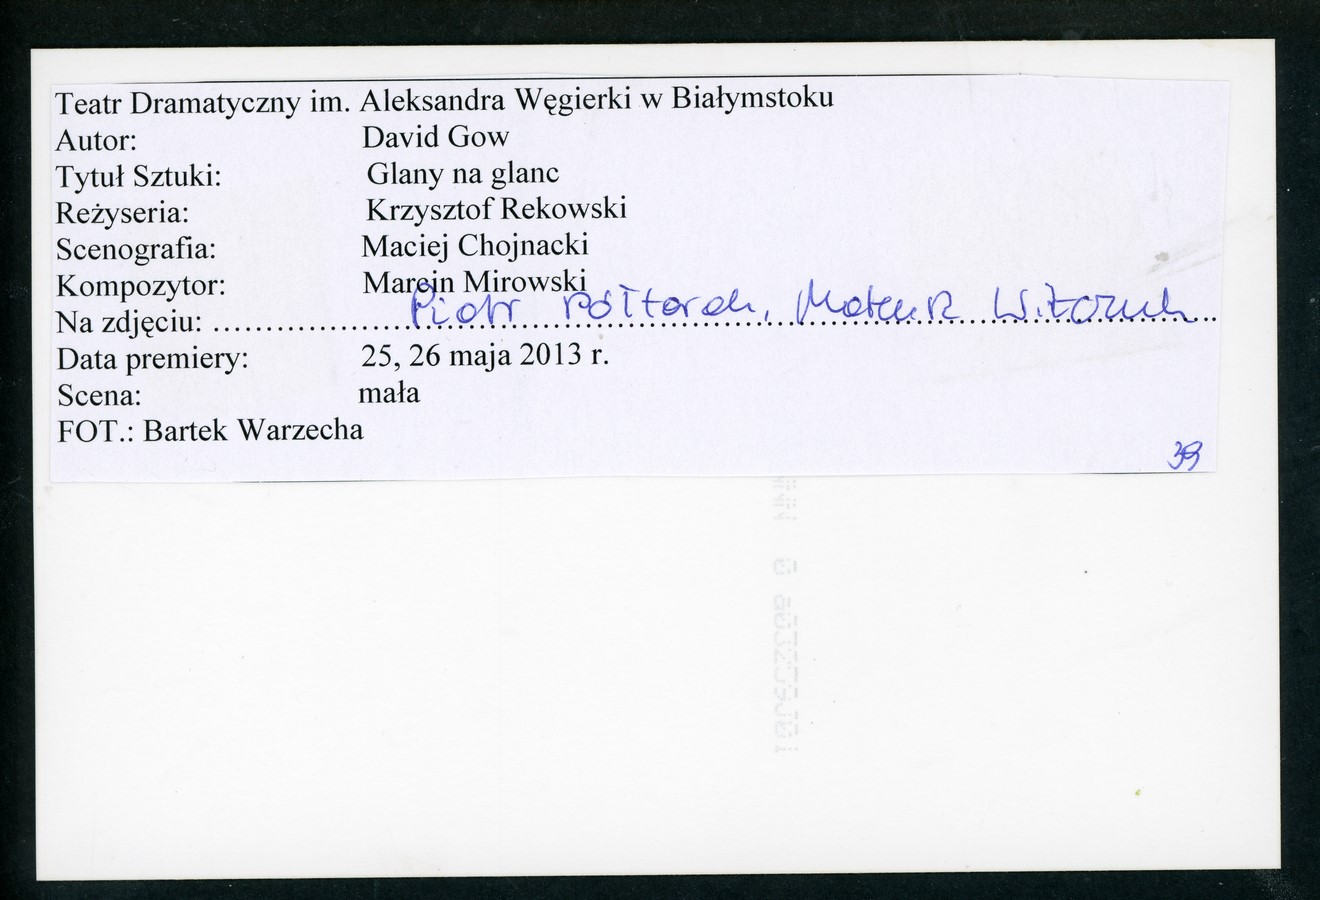 Teatr Dramatyczny im. Aleksandra Węgierki w Białymstoku
Autor: David Gow
Tytuł Sztuki: Glany na glanc
Reżyseria: Krzysztof Rekowski
Scenografia: Maciej Chojnacki
Kompozytor: Marcin Mirowski
Na zdjęciu: Piotr Półtorak, Mateusz Witczuk
Data premiery: 25, 26 maja 2013 r.
Scena: mała
FOT.: Bartek Warzecha
39